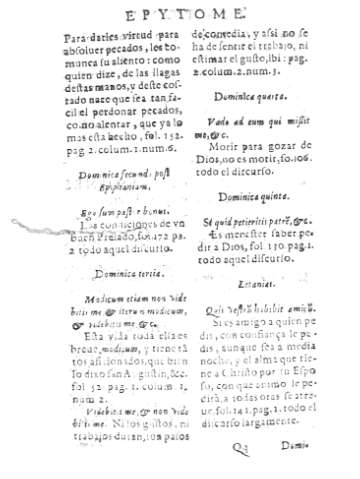 EPYTOME.
Para darles virtud para
absoluer pecados, les co-
munca su aliento: como
quien dize, de las llagas
destas manos, y deste cos-
tado nace que sea tan fa-
cil el perdonar pecados,
como alentar, que ya lo
mas esta hecho, fol. 152.
pag. 2. colum. 1. num. 6.
Dominica secund. post
Epiphaniam,
Ego sum past r bonus.
Las condiciones de vn
buen Prelado, fol. 172 pa.
2 todo aquel discurso.
Dominica tercia.
Modicum etiam non vide
bitis me & iterum modicum,
& videbitis me, &c.
Esta vida toda ella es
breue, modicum, y tiene tã
tos asisionados, que bien
lo dixo san A gustin, &c.
fol. 52. pag. 1. colum. 1,
num 2.
Videbitis me, & non vide
bitis me. Ni los gustos, ni
trabajos duran, son pasos
de comedia, y assi no se
ha de sentir el trabajo, ni
estimar el gusto, Ibi: pag.
2. colum. 2. num. 3.
Dominica quarta.
Vado ad eum qui missit
me, &c.
Morir para gozar de
Dios, no es morir, fo. 106.
todo el discurso.
Dominica quinta.
Si quid petieritis patrẽ, &c.
Es menester saber pe-
dir a Dios, fol 130. pag. 1.
todo aquel discurso.
Letanias.
Quis vestrũ habibit amicũ.
Si es amigo a quien pe
dis, con confiança le pe-
dis, aunque sea a media
noche, y el alma que tie-
ne a Christo por su Espo
so, con que animo le pe-
dirà, a todas oras se atre-
ue. fol. 141. pag. 1. todo el
discurso largamente.
Q3 Domi-